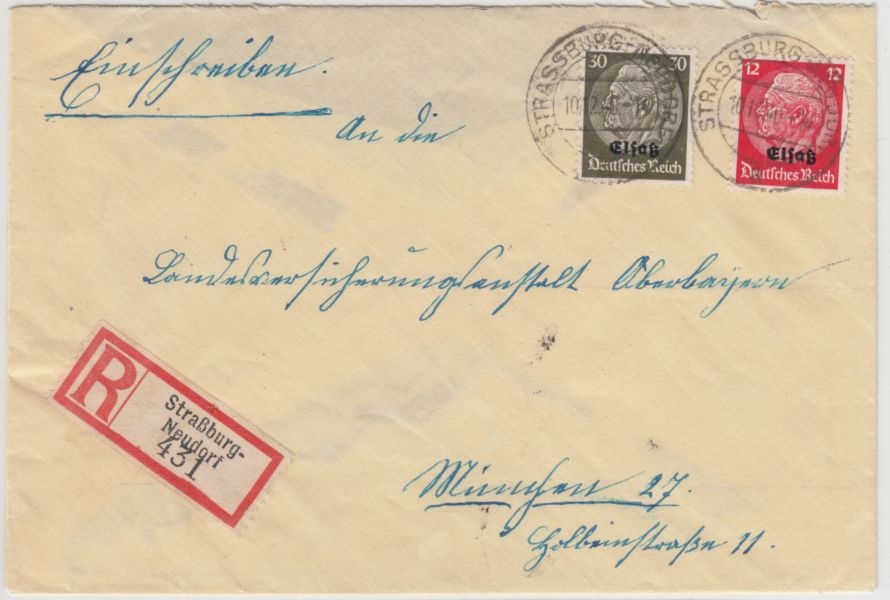 Einschreiben.
An die
Landesversicherungsanstalt Oberbayern
München 27.
Holbeinstraße 11.
R
Straßburg-
Neudorf
431
30 30
Elsaß
Deutsches Reich
12 12
Elsaß
Deutsches Reich
STRASSBURG-NEUDORF
STRASSBURG-NEUDORF